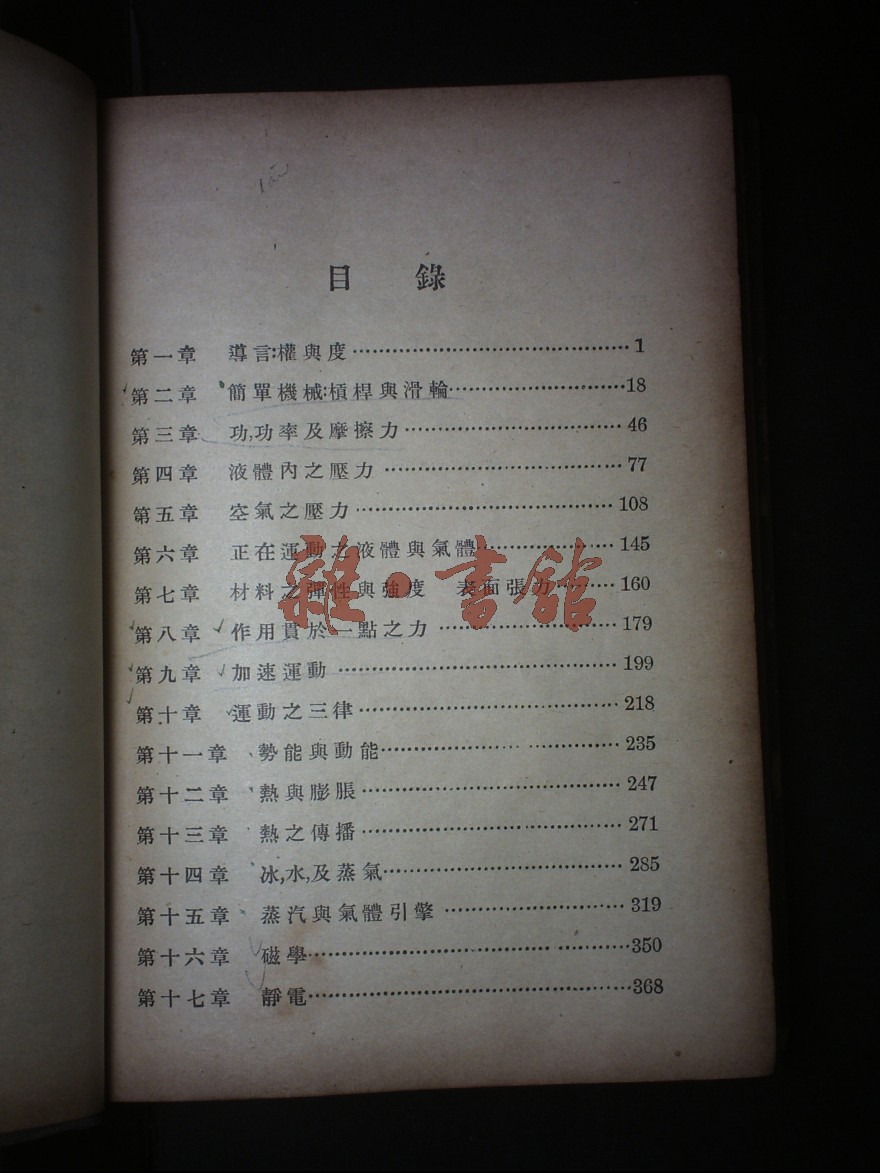 目錄
第一章 導言:權與度 1
第二章 簡單機械:槓桿與滑輪 18
第三章 功,功率及摩擦力 46
第四章 液體內之壓力 77
第五章 空氣之壓力 108
第六章 正在運動之液體與氣體 145
第七章 材料之彈性與強度 表面張力 160
第八章 作用貫於一點之力 179
第九章 加速運動 199
第十章 運動之三律 218
第十一章 勢能與動能 235
第十二章 熱與膨脹 247
第十三章 熱之傳播 271
第十四章 冰,水,及蒸氣 285
第十五章 蒸汽與氣體引擎 319
第十六章 磁學 350
第十七章 靜電 368
雜·書館